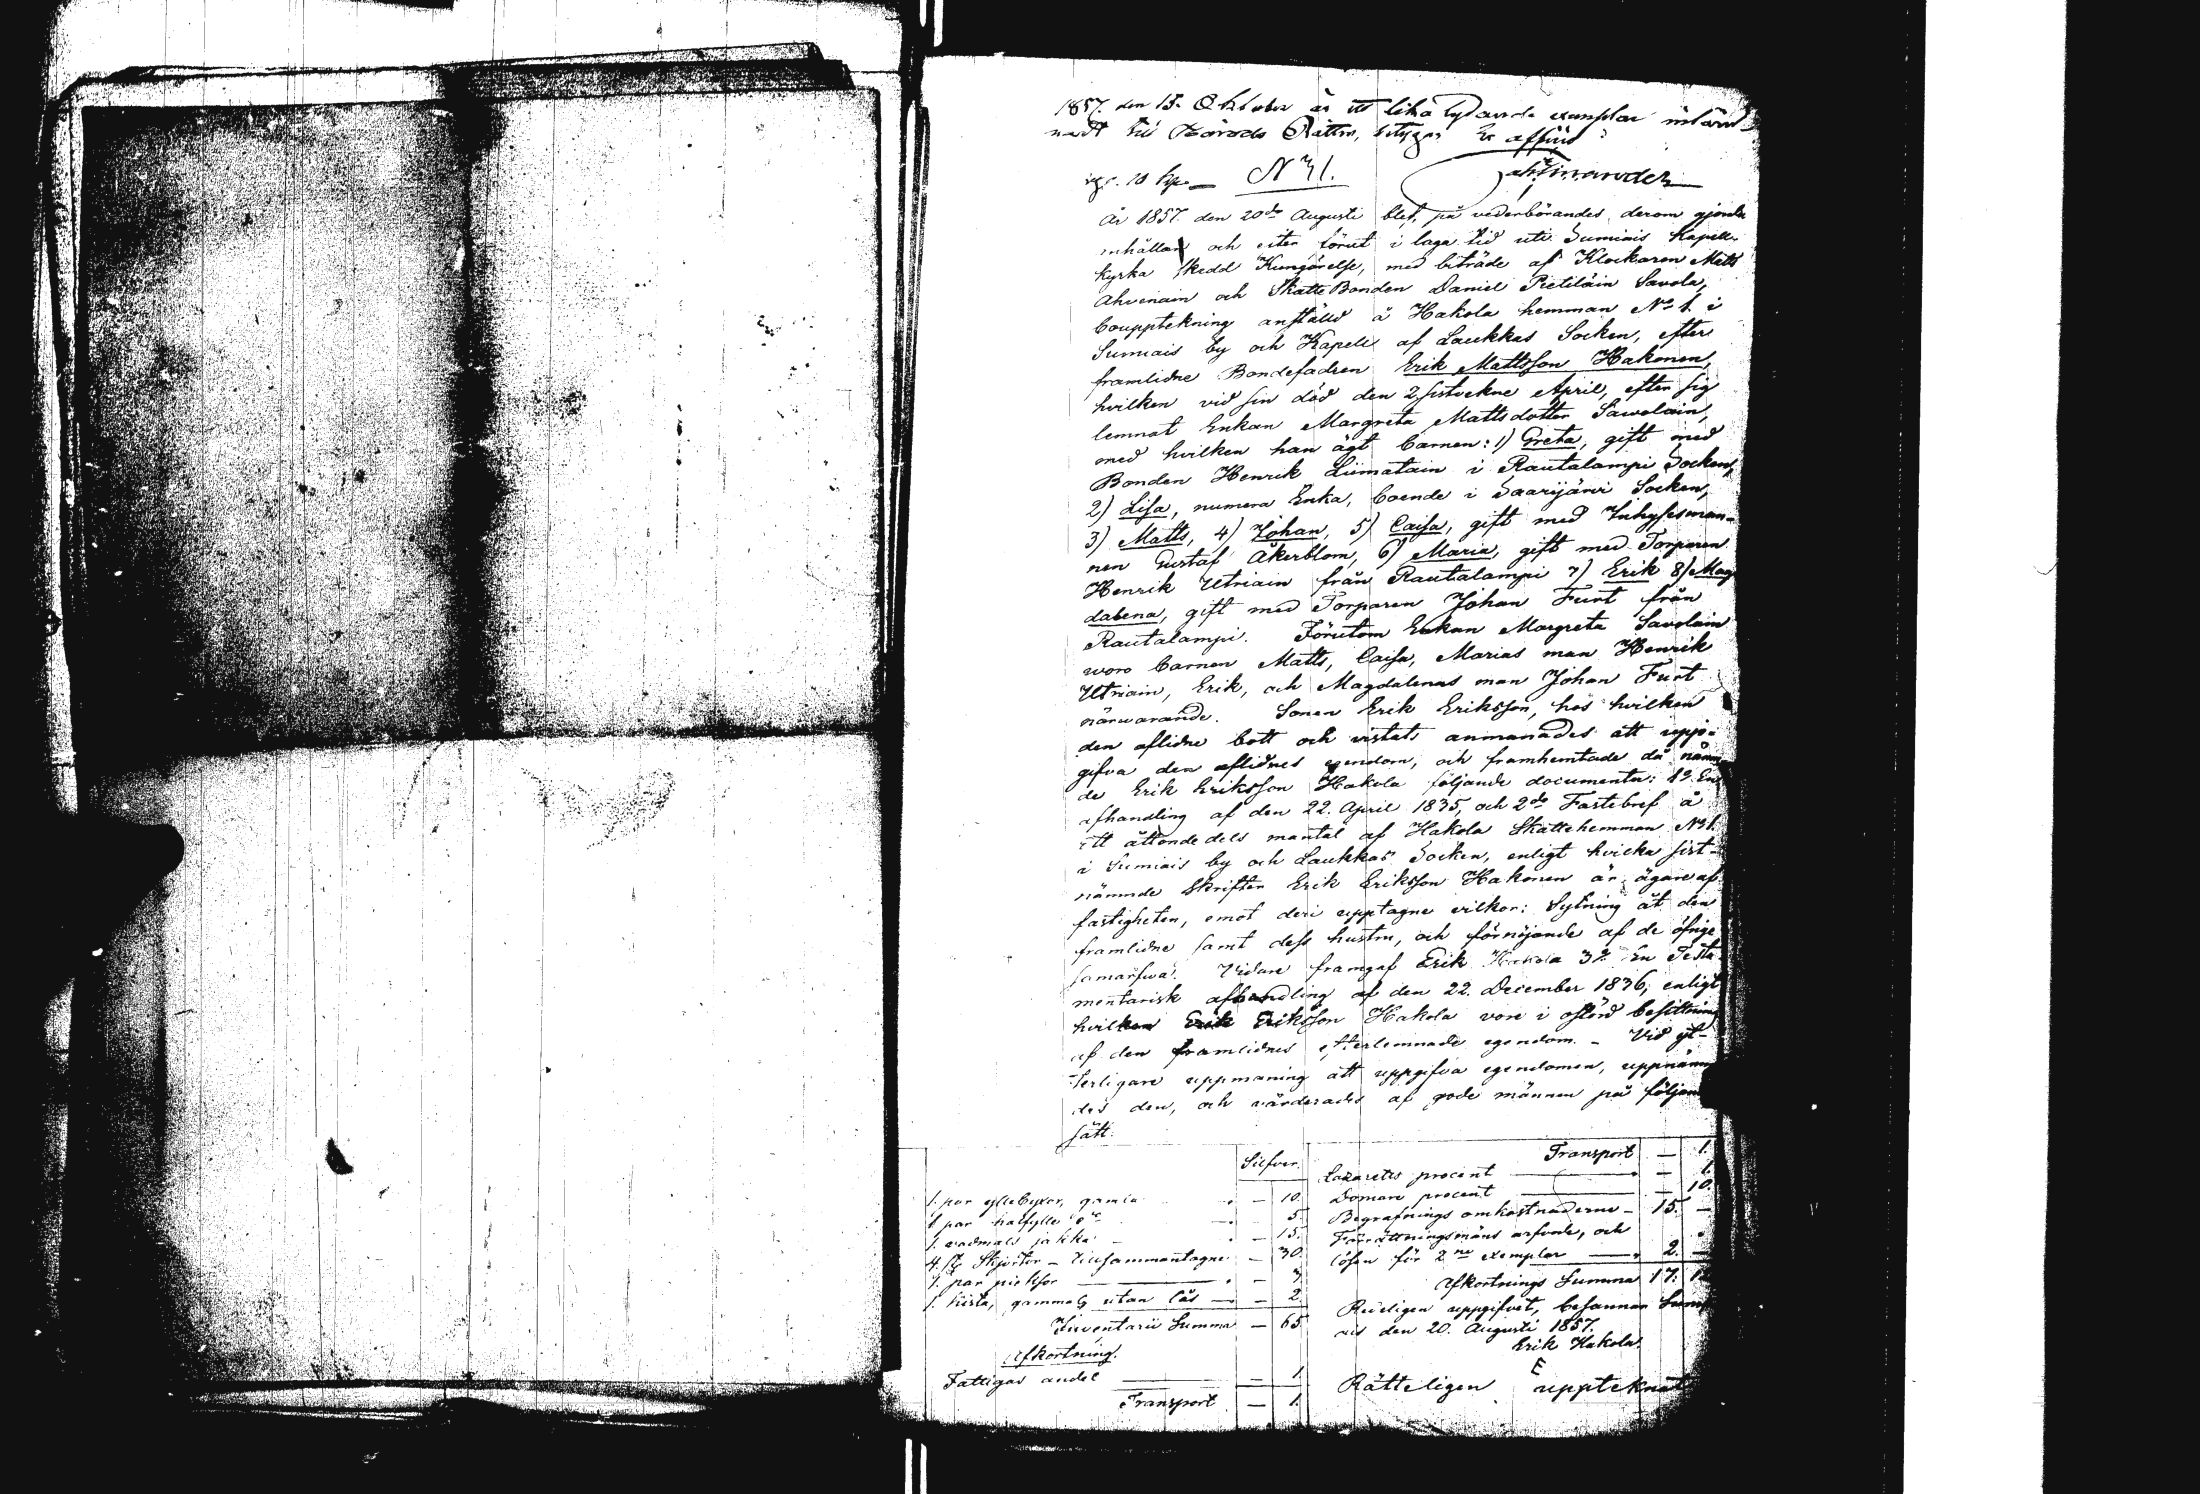 1857. den 15. Oktober är ett lika lydande exemplar inläm-
nadt till Härads Rätten, betygar Ex officio
10 kp. — N:o 1.
År 1857. den 20de Augusti blef, på vederbörandes derom gjorde
anhållan och efter förut i laga tid uti Sumiais Kapell-
kyrka skedd Kungörelse, med biträde af Klockaren Matts
Ahvenain och SkatteBonden Daniel Pietiläin Savola,
bouppteckning anställd å Hakola hemman No 1. i
Sumiais by och Kapell af Laukkas Socken, efter
framlidne Bondefadren Erik Mattsson Hakonen,
hvilken vid sin död den 2 sistvekne April, efter sig
lemnat Enkan Margreta Mattsdotter Sawolain,
med hvilken han ägt barnen: 1) Greta, gift med
Bonden Henrik Liimatain i Rautalampi Socken,
2) Lisa, numera Enka, boende i Saarijärvi Socken,
3) Matts, 4) Johan, 5) Caisa, gift med Inhysesman-
nen Gustaf Åkerblom, 6) Maria, gift med Torparen
Henrik Utriain från Rautalampi 7) Erik 8) Mag
dalena, gift med Torparen Johan Furt från
Rautalampi. Förutom Enkan Margreta Savolain
woro barnen Matts, Caisa, Marias man Henrik
Utriain, Erik, och Magdalenas man Johan Furt
närwarande. Sonen Erik Eriksson, hos hvilken
den aflidne bott och vistats anmanades att upp-
gifva den aflidnes egendom, och framhemtade då nämn
de Erik Eriksson Hakola följande documenter: 1o En
afhandling af den 22. April 1835, och 2do Fastebref å
ett åttondedels mantal af Hakola Skattehemman No 1.
i Sumiais by och Laukkas Socken, enligt hvilka sist-
nämnde Skrifter Erik Eriksson Hakonen är ägare af
fastigheten, emot deri upptagne vilkor: Sytning åt den
framlidne samt dess hustru, och förnöjande af de öfrige
samarfwa. Vidare framgaf Erik Hakola 3o En Testa
mentarisk afhandling af den 22. December 1836, enligt
hvilken Erik Eriksson Hakola vore i ostörd besittning
af den framlidnes efterlemnade egendom. – Vid yt-
terligare uppmaning att uppgifva egendomen, uppnämn
des den, och värderades af gode männen på följan
sätt:
Silfver.
1. par yllebyxor, gamla — 10.
1 par halfylle do — 5.
1. vadmals jakka — 15.
4. st. Skjortor – tillsammantagne — 30.
1. par pieksor — 3.
1. kista, gammal, utan lås — 2.
Inventarii Summa — 65
Afkortning.
Fattigas andel — 1.
Transport — 1.
Transport — 1.
Lazarettes procent — 1.
Domare procent — 10.
Begrafnings omkostnaderne — 15. —
Förrättningsmäns arfvode, och
lösen för 2ne exemplar — 2. —
Afkortnings Summa 17. 12
Redeligen uppgifvet, besannan Sumi
ais den 20. Augusti 1857.
Erik Hakola.
Rätteligen uppteknat